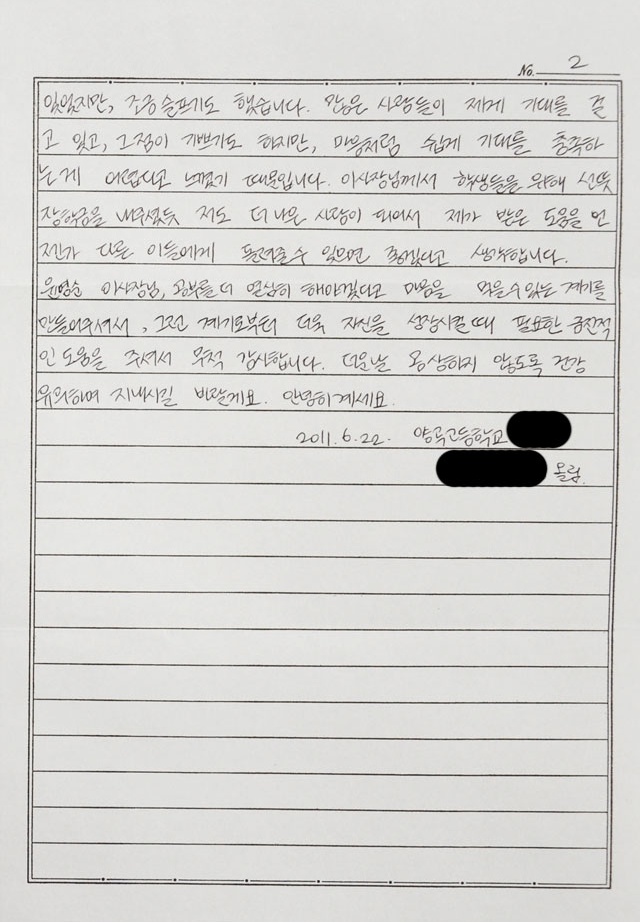 No. 2
있었지만, 조금 슬프기도 했습니다. 많은 사람들이 제게 기대를 걸
고 있고, 그점이 기쁘기도 하지만, 마음처럼 쉽게 기대를 충족하
는게 어렵다고 느꼈기 때문입니다. 이사장님께서 학생들을 위해 선뜻
장학금을 내주셨듯 저도 더 나은 사람이 되어서 제가 받은 도움을 언
젠가 다른 이들에게 돌려줄 수 있으면 좋겠다고 생각합니다.
윤명순 이사장님, 공부를 더 열심히 해야겠다고 마음을 먹을 수 있는 계기를
만들어주셔서, 그런 계기로부터 더욱 자신을 성장시킬 때 필요한 금전적
인 도움을 주셔서 무척 감사합니다. 더운날 몸 상하지 않도록 건강
유의하며 지내시길 바랄게요. 안녕히계세요.
2011. 6. 22. 양곡고등학교
올림.